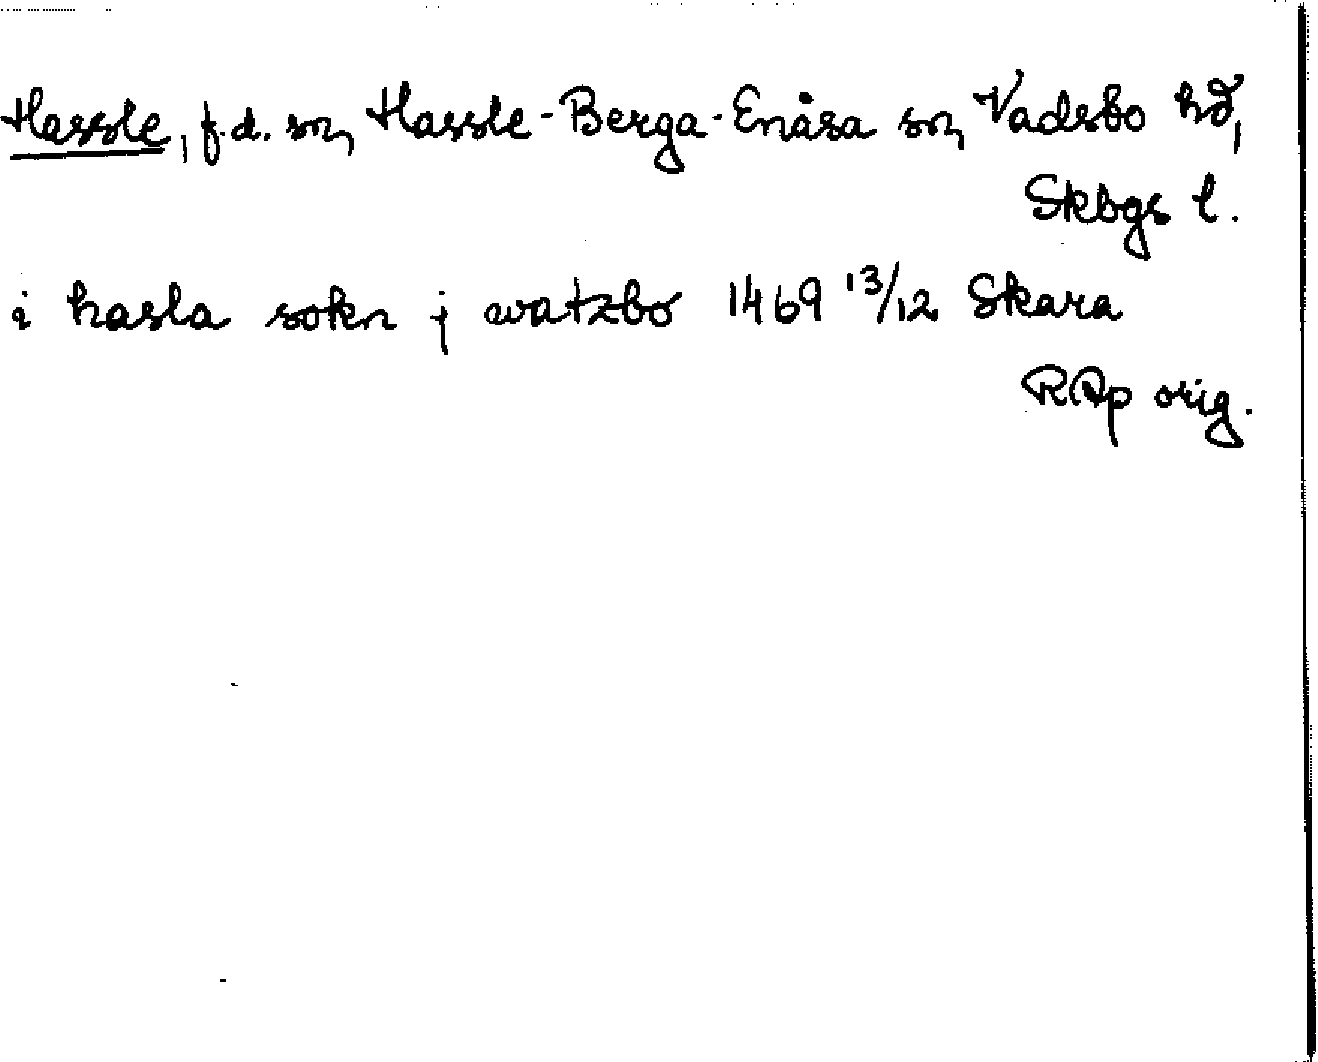 Hassle, f.d. sn, Hassle-Berga-Enåsa sn, Vadsbo hd,
Skbgs l.
i hasla sokn j watzbo 1469 13/12 Skara
RAp orig.